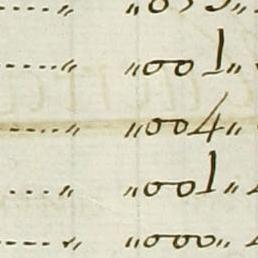 ....." "001"
....." "004"
...." "001"
....." "000"